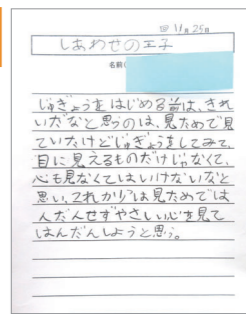 11月25日
しあわせの王子
名前(
じゅぎょうをはじめる前は、きれ
いだなと思うのは、見ためで見
ていたけどじゅぎょうをしてみて、
目に見えるものだけじゃなくて、
心も見なくてはいけないなと
思い、これからは見ためでは
んだんせずやさしい心を見て
はんだんしようと思う。